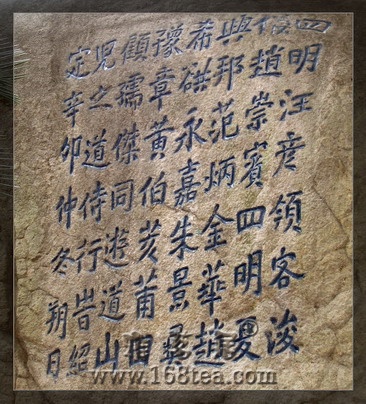 四明汪彦領客浚
儀趙崇賓四明夏
興邦范炳金華趙
希永嘉朱景
豫章黄伯莆田
顧孺傑同遊道山
兒之道侍行旹紹
定辛卯仲冬朔日
www.168tea.com